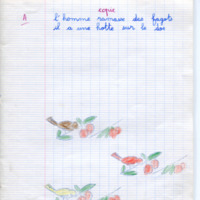 copie
A l'homme ramasse des fagots
il a une hotte sur le dos